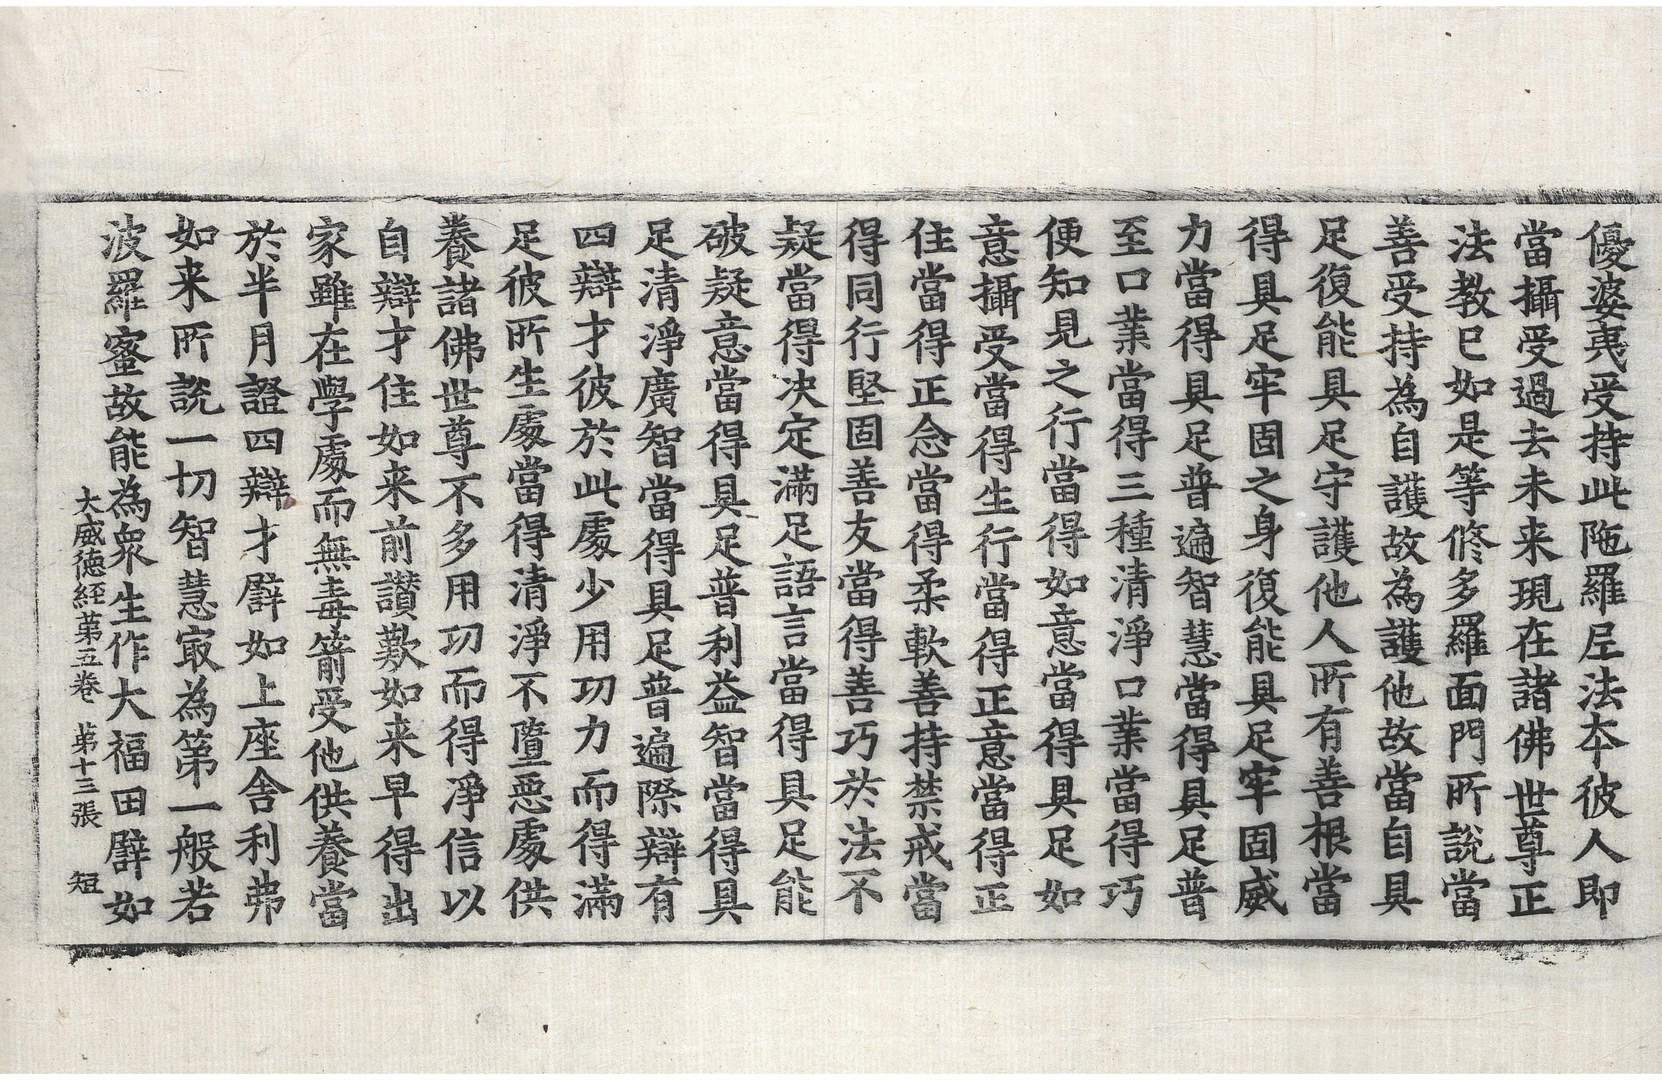 優婆夷受持此陁羅尼法夲彼人即
當攝受過去未来現在諸佛世尊正
法教巳如是等修多羅面門所說當
善受持為自護故為護他故當自具
足復能具足守護他人所有善根當
得具足牢固之身復能具足牢固威
力當得具足普遍智慧當得具足普
至口業當得三種清淨口業當得巧
便知見之行當得如意當得具足如
意攝受當得生行當得正意當得正
住當得正念當得柔軟善持禁戒當
得同行堅固善友當得善巧於法不
疑當得决定滿足語言當得具足能
破疑意當得具足普利益智當得具
足清淨廣智當得具足普遍際辯有
四辯才彼於此處少用功力而得滿
足彼所生處當得清淨不墮惡處供
養諸佛世尊不多用功而得淨信以
自辯才住如来前讃歎如来早得出
家雖在學處而無毒箭受他供養當
於半月證四辯才譬如上座舍利弗
如来所說一切智慧㝡為第一般若
波羅蜜故能為衆生作大福田譬如
大威德経苐五卷 苐十三張 短